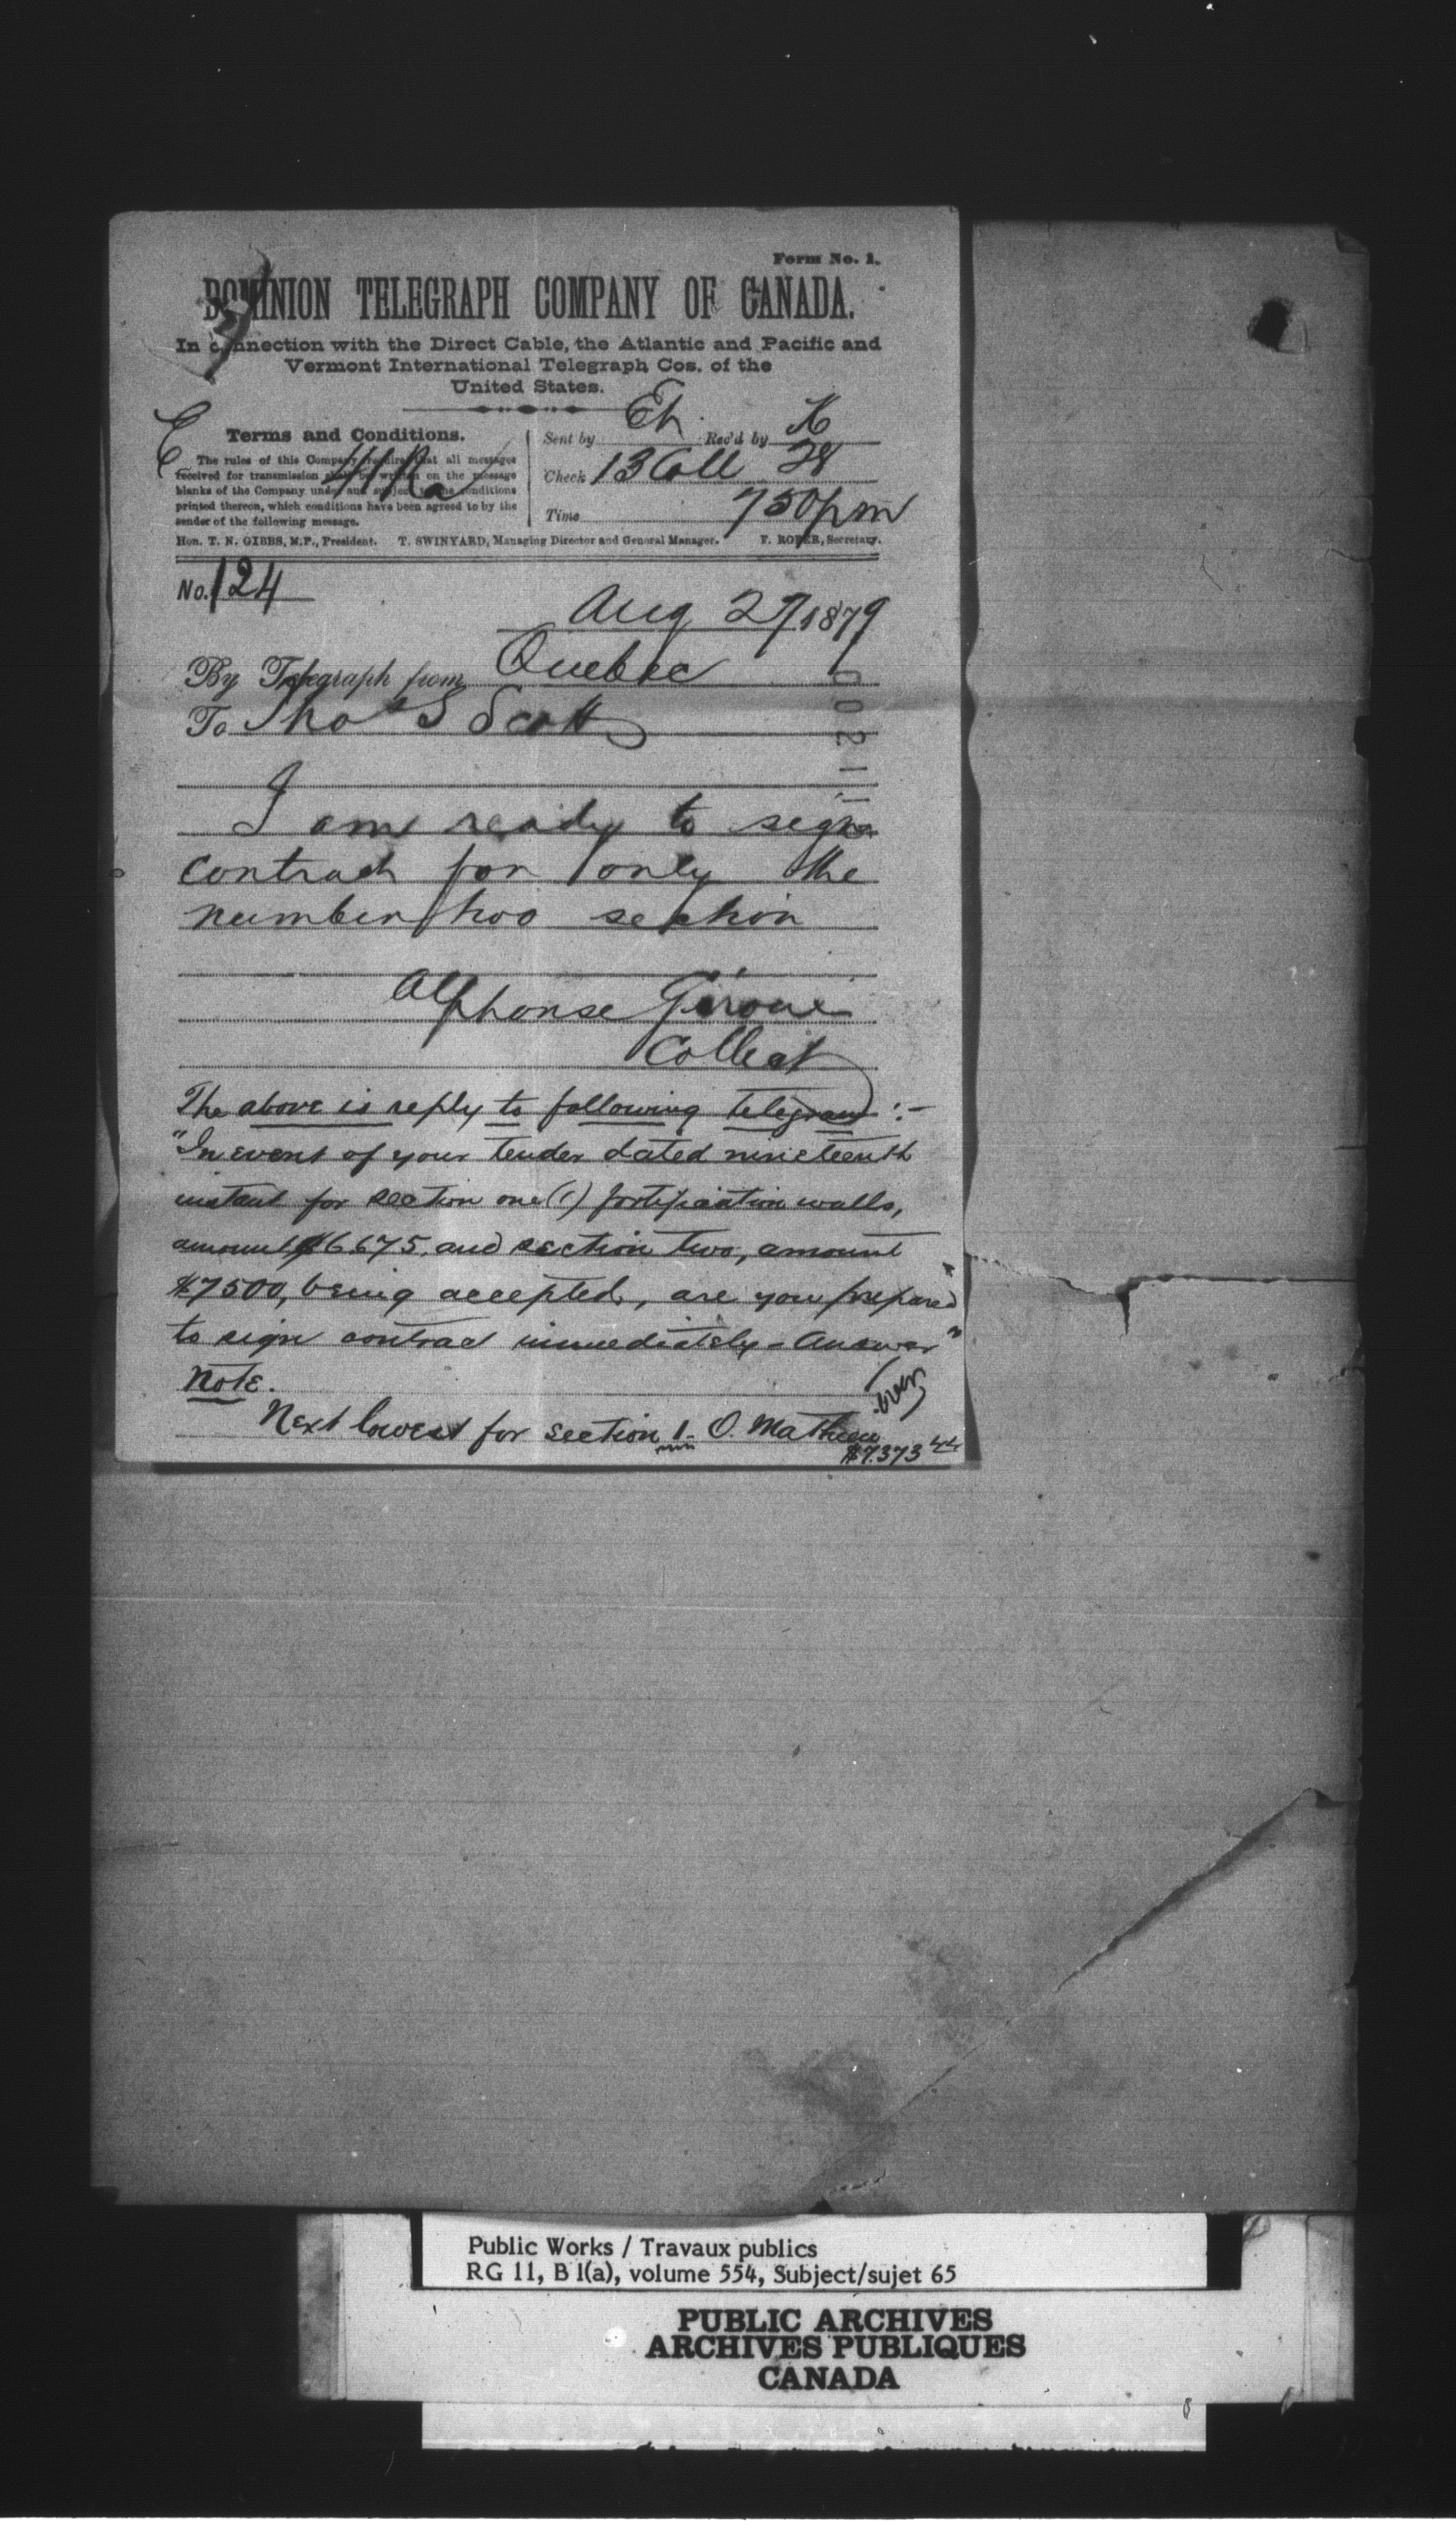 Form No. 1.
DOMINION TELEGRAPH COMPANY OF CANADA.
In connection with the Direct Cable, the Atlantic and Pacific and
Vermont International Telegraph Cos. of the
United States.
Terms and Conditions.
The rules of this Company require that all messages
received for transmission shall be written on the message
blanks of the Company under and subject to the conditions
printed thereon, which conditions have been agreed to by the
sender of the following message.
Sent by Eh. Rec'd by K
Check 13 Coll 28
Time 750pm
Hon. T. N. GIBBS, M.P., President. T. SWINYARD, Managing Director and General Manager. F. ROPER, Secretary.
No. 124
Aug 27 1879
By Telegraph from Quebec
To Thos S Scott
I am ready to sign
contract for only the
number two section
Alphonse
Collect
The above is reply to following telegram :-
"In event of your tender dated nineteenth
instant for section one (1) fortification walls,
amount $6675. and section two, amount
$7500, being accepted, are you prepared
to sign contract immediately - Answer"
Note.
over
Next lowest for section 1 - O. Mathieu
$7.373 44
Public Works / Travaux publics
RG 11, B 1(a), volume 554, Subject/sujet 65
PUBLIC ARCHIVES
ARCHIVES PUBLIQUES
CANADA